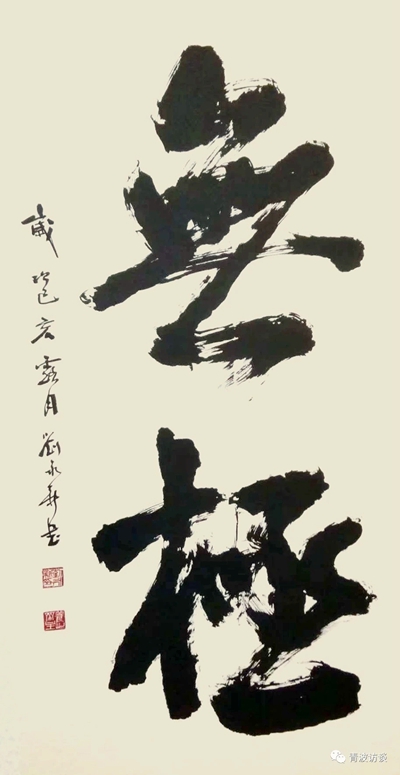 無極
歲次己亥月劉永書
青波访谈